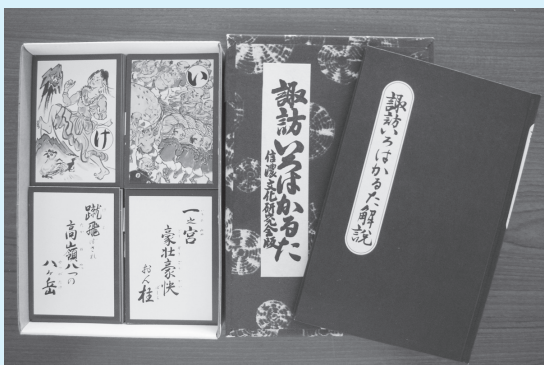 け
い
蹴飛ばされ
高嶺八つの
八ヶ岳
一之宮
豪壮豪快
おん柱
諏訪いろはかるた
信濃文化研究会版
諏訪いろはかるた解説